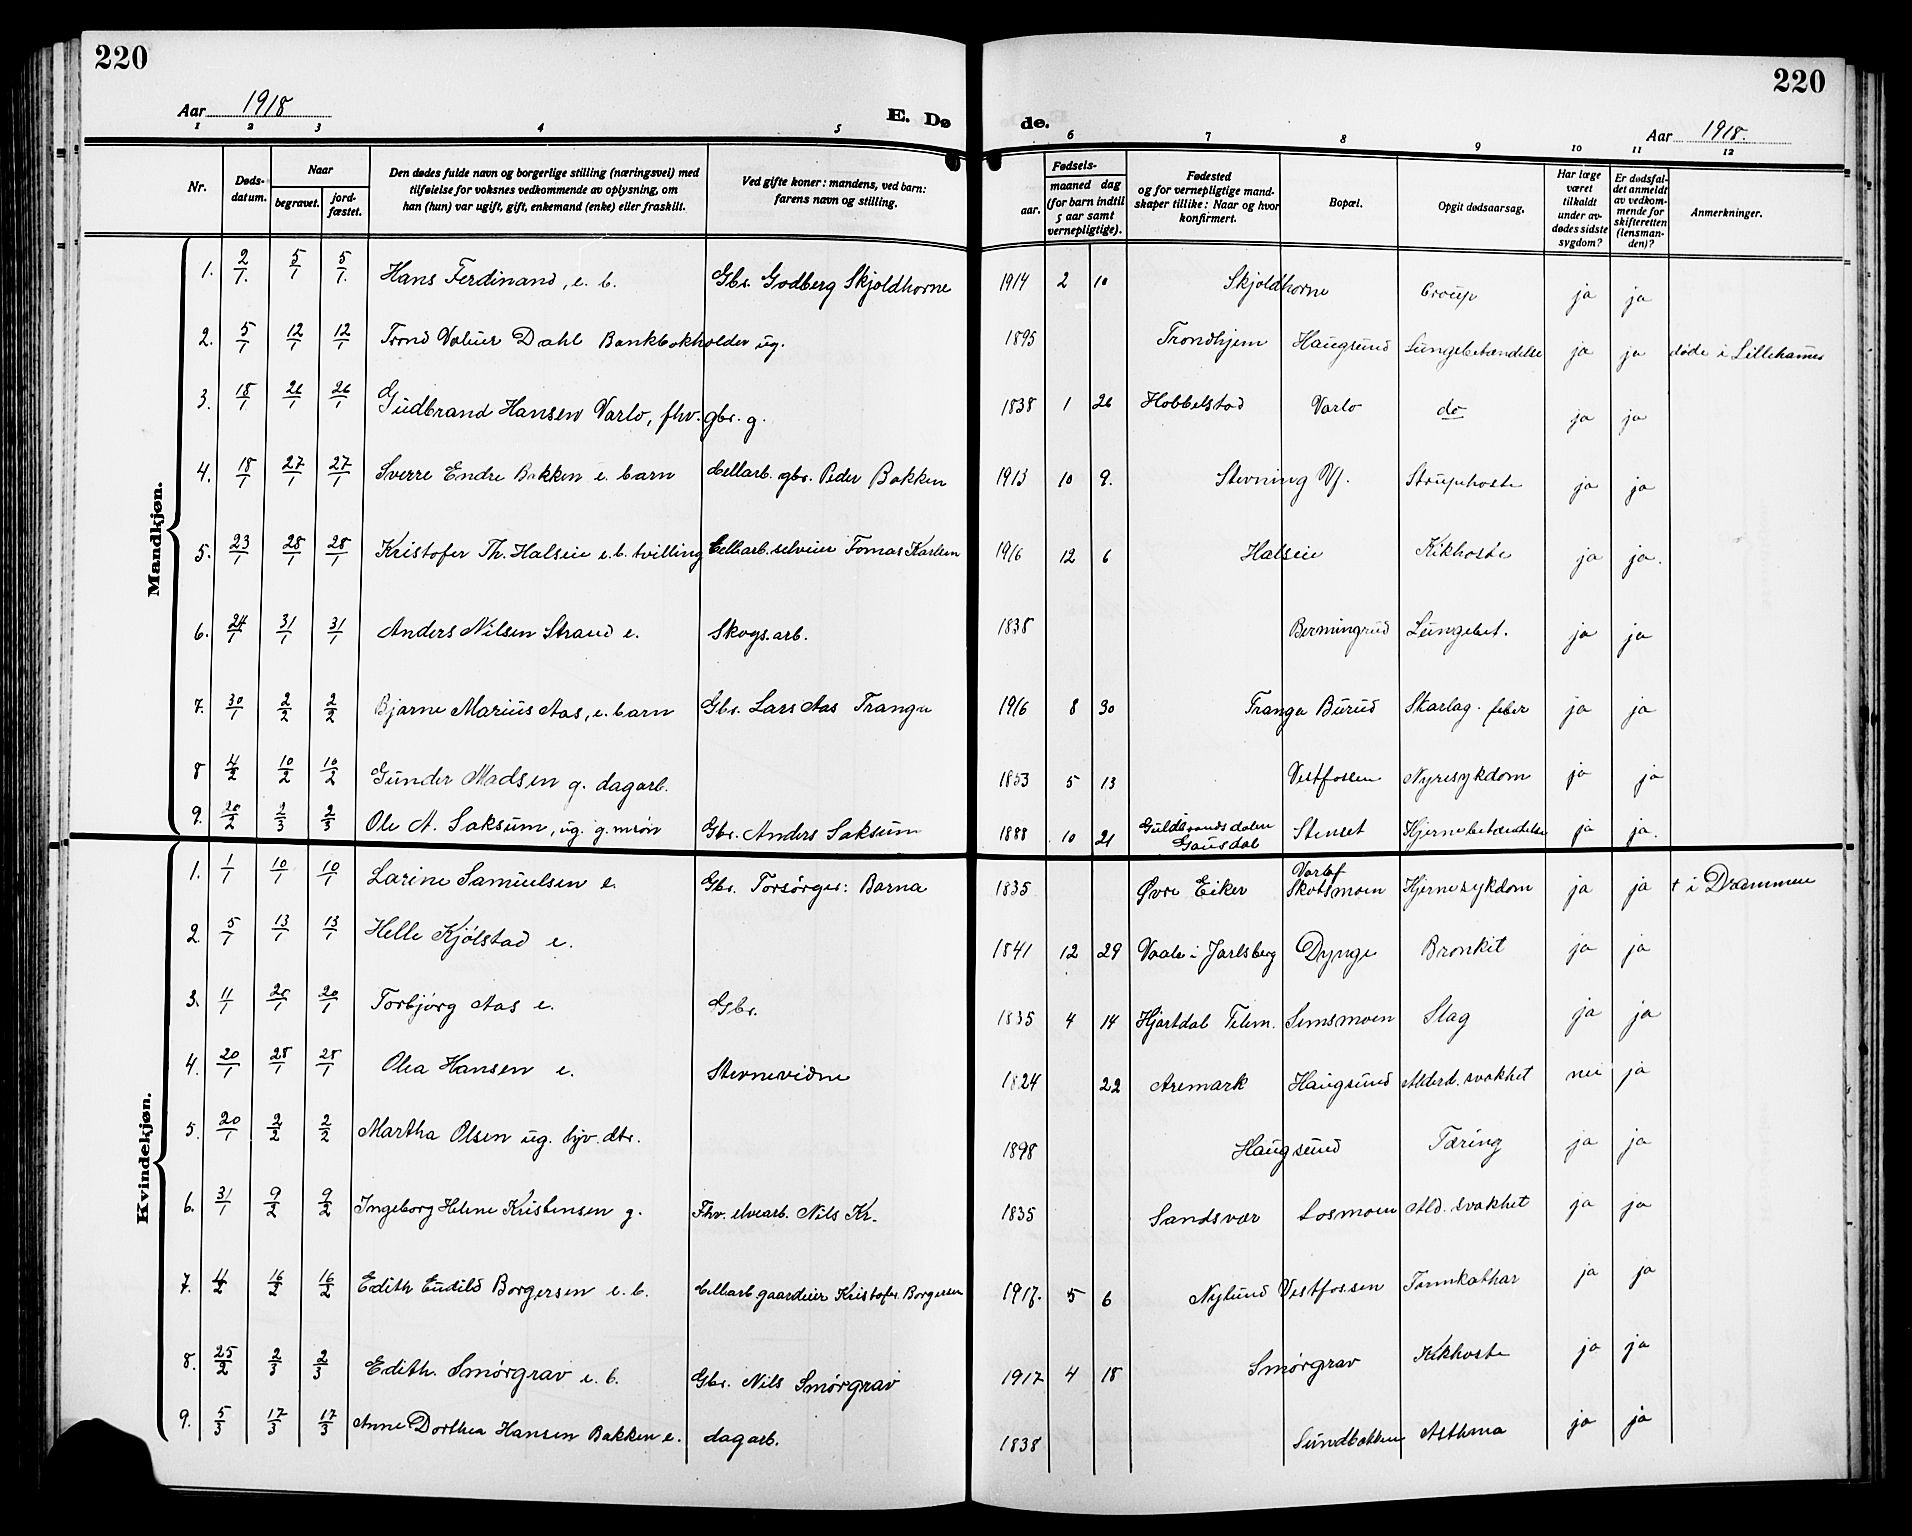 220
220
Aar 1918
E. Dø
de.
Aar 1918.
1 2 3 4 5 6 7 8 9 10 11 12
Nr.
Døds-
datum.
Naar
begravet.
jord-
fæstet.
Den dødes fulde navn og borgerlige stilling (næringsvei) med
tilføielse for voksnes vedkommende av oplysning, om
han (hun) var ugift, gift, enkemand (enke) eller fraskilt.
Ved gifte koner: mandens, ved barn:
farens navn og stilling.
Fødsels-
aar.
maaned dag
(for barn indtil
5 aar samt
vernepligtige).
Fødested
og for vernepligtige mand-
skaper tillike: Naar og hvor
konfirmert.
Bopæl.
Opgit dødsaarsag.
Har læge
været
tilkaldt
under av-
dødes sidste
sygdom?
Er dødsfal-
det anmeldt
av vedkom-
mende for
skifteretten
(lensman-
den)?
Anmerkninger.
Mandkjøn.
1. 2/1. 5/1 5/1. Hans Ferdinand, e. b. Gbr. Godberg Skjoldhorne 1914 2 10 Skjoldhorne Croup ja ja
2. 5/1 12/1 12/1 Trond Dahl Bankbokholder ug. 1895 Trondhjem Haugsund Lungebetændelse ja ja døde i Lillehamer
3. 18/1 26/1 26/1 Gudbrand Hansen Varlo, fhv. gbr. g. 1838 1 26 Hobbelstad Varlo do ja ja
4. 18/1 27/1 27/1 Sverre Endre Bakken e. barn Cellarb. gbr. Peder Bakken 1913 10 9. Stevning Vf. Strupehoste ja ja
5. 23/1 28/1 28/1 Kristofer Th. Halseie e. b. tvilling Cellarb. selveier Tomas Karlsen 1916 12 6 Halseie Kikhoste ja ja.
6. 24/1 31/1 31/1 Anders Nilsen Strand e. Skogsarb. 1838 Bermingrud Lungebet. ja ja
7. 30/1 2/2 2/2 Bjarne Marius Aas, e. barn Gbr. Lars Aas Tranga 1916 8 30 Tranga Burud Skarlag. feber ja ja
8 4/2 10/2 10/2 Gunder Madsen g. dagarb. 1853 5 13 Vestfossen Nyresykdom ja ja
9. 20/2 2/3 2/3 Ole A. Saksum, ug. g.m.søn Gbr. Anders Saksum 1888 10 21 Guldbrandsdalen Gausdal Stenset Hjernebetændelse ja ja.
Kvindekjøn.
1. 1/1 10/1 10/1 Larine Samuelsen e. Gbr. Forsørges: Barna 1835 Øvre Eiker Varlof Skotsmoen Hjernesykdom ja ja † i Drammen
2. 5/1 13/1 13/1 Helle Kjølstad e. 1841 12 29 Vaale i Jarlsberg Dynge Bronkit ja ja
3. 11/1 20/1 20/1 Torbjørg Aas e. Gbr. 1835 4 14 Hjartdal Telem. Semsmoen Slag ja ja
4. 20/1 28/1 28/1 Olea Hansen e. Stevnevidne 1824 22 Aremark Haugsund Alderd. svakhet nei ja
5. 20/1 2/2 2/2 Martha Olsen ug. hjv. dtr. 1898 Haugsund Tæring ja ja
6. 31/1 9/2 9/2 Ingeborg Helene Kristensen g. Fhv. elvearb. Nils Kr. 1835 Sandsvær Losmoen Ald. svakhet ja ja
7. 4/2 16/2 16/2 Edith Eudild Borgersen e. b. Cellarb gaardeier Kristofer Borgersen 1917. 5 6 Nylund Vestfossen Tarmkathar ja ja
8. 25/2 2/3 2/3 Edith. Smørgrav e. b. Gbr. Nils Smørgrav 1917 4 18 Smørgrav Kikhoste ja ja
9. 5/3 17/3 17/3 Anne Dorthea Hansen Bakken e. dagarb. 1838 Sundbakken Asthma ja ja